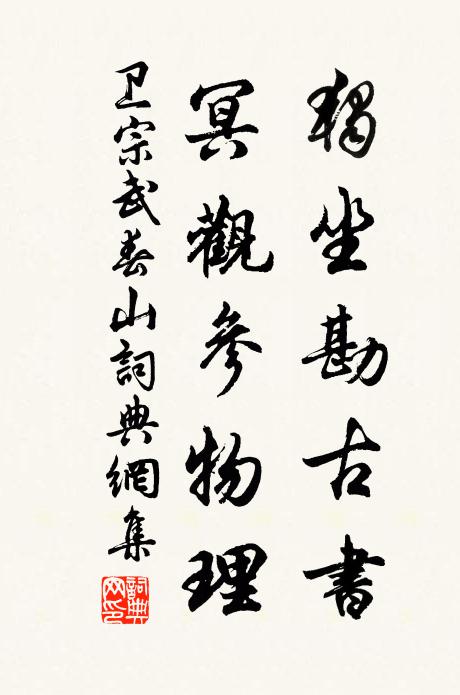 獨坐勘古書
冥觀參物理
卫宗武春山詞典網集
詞典网印